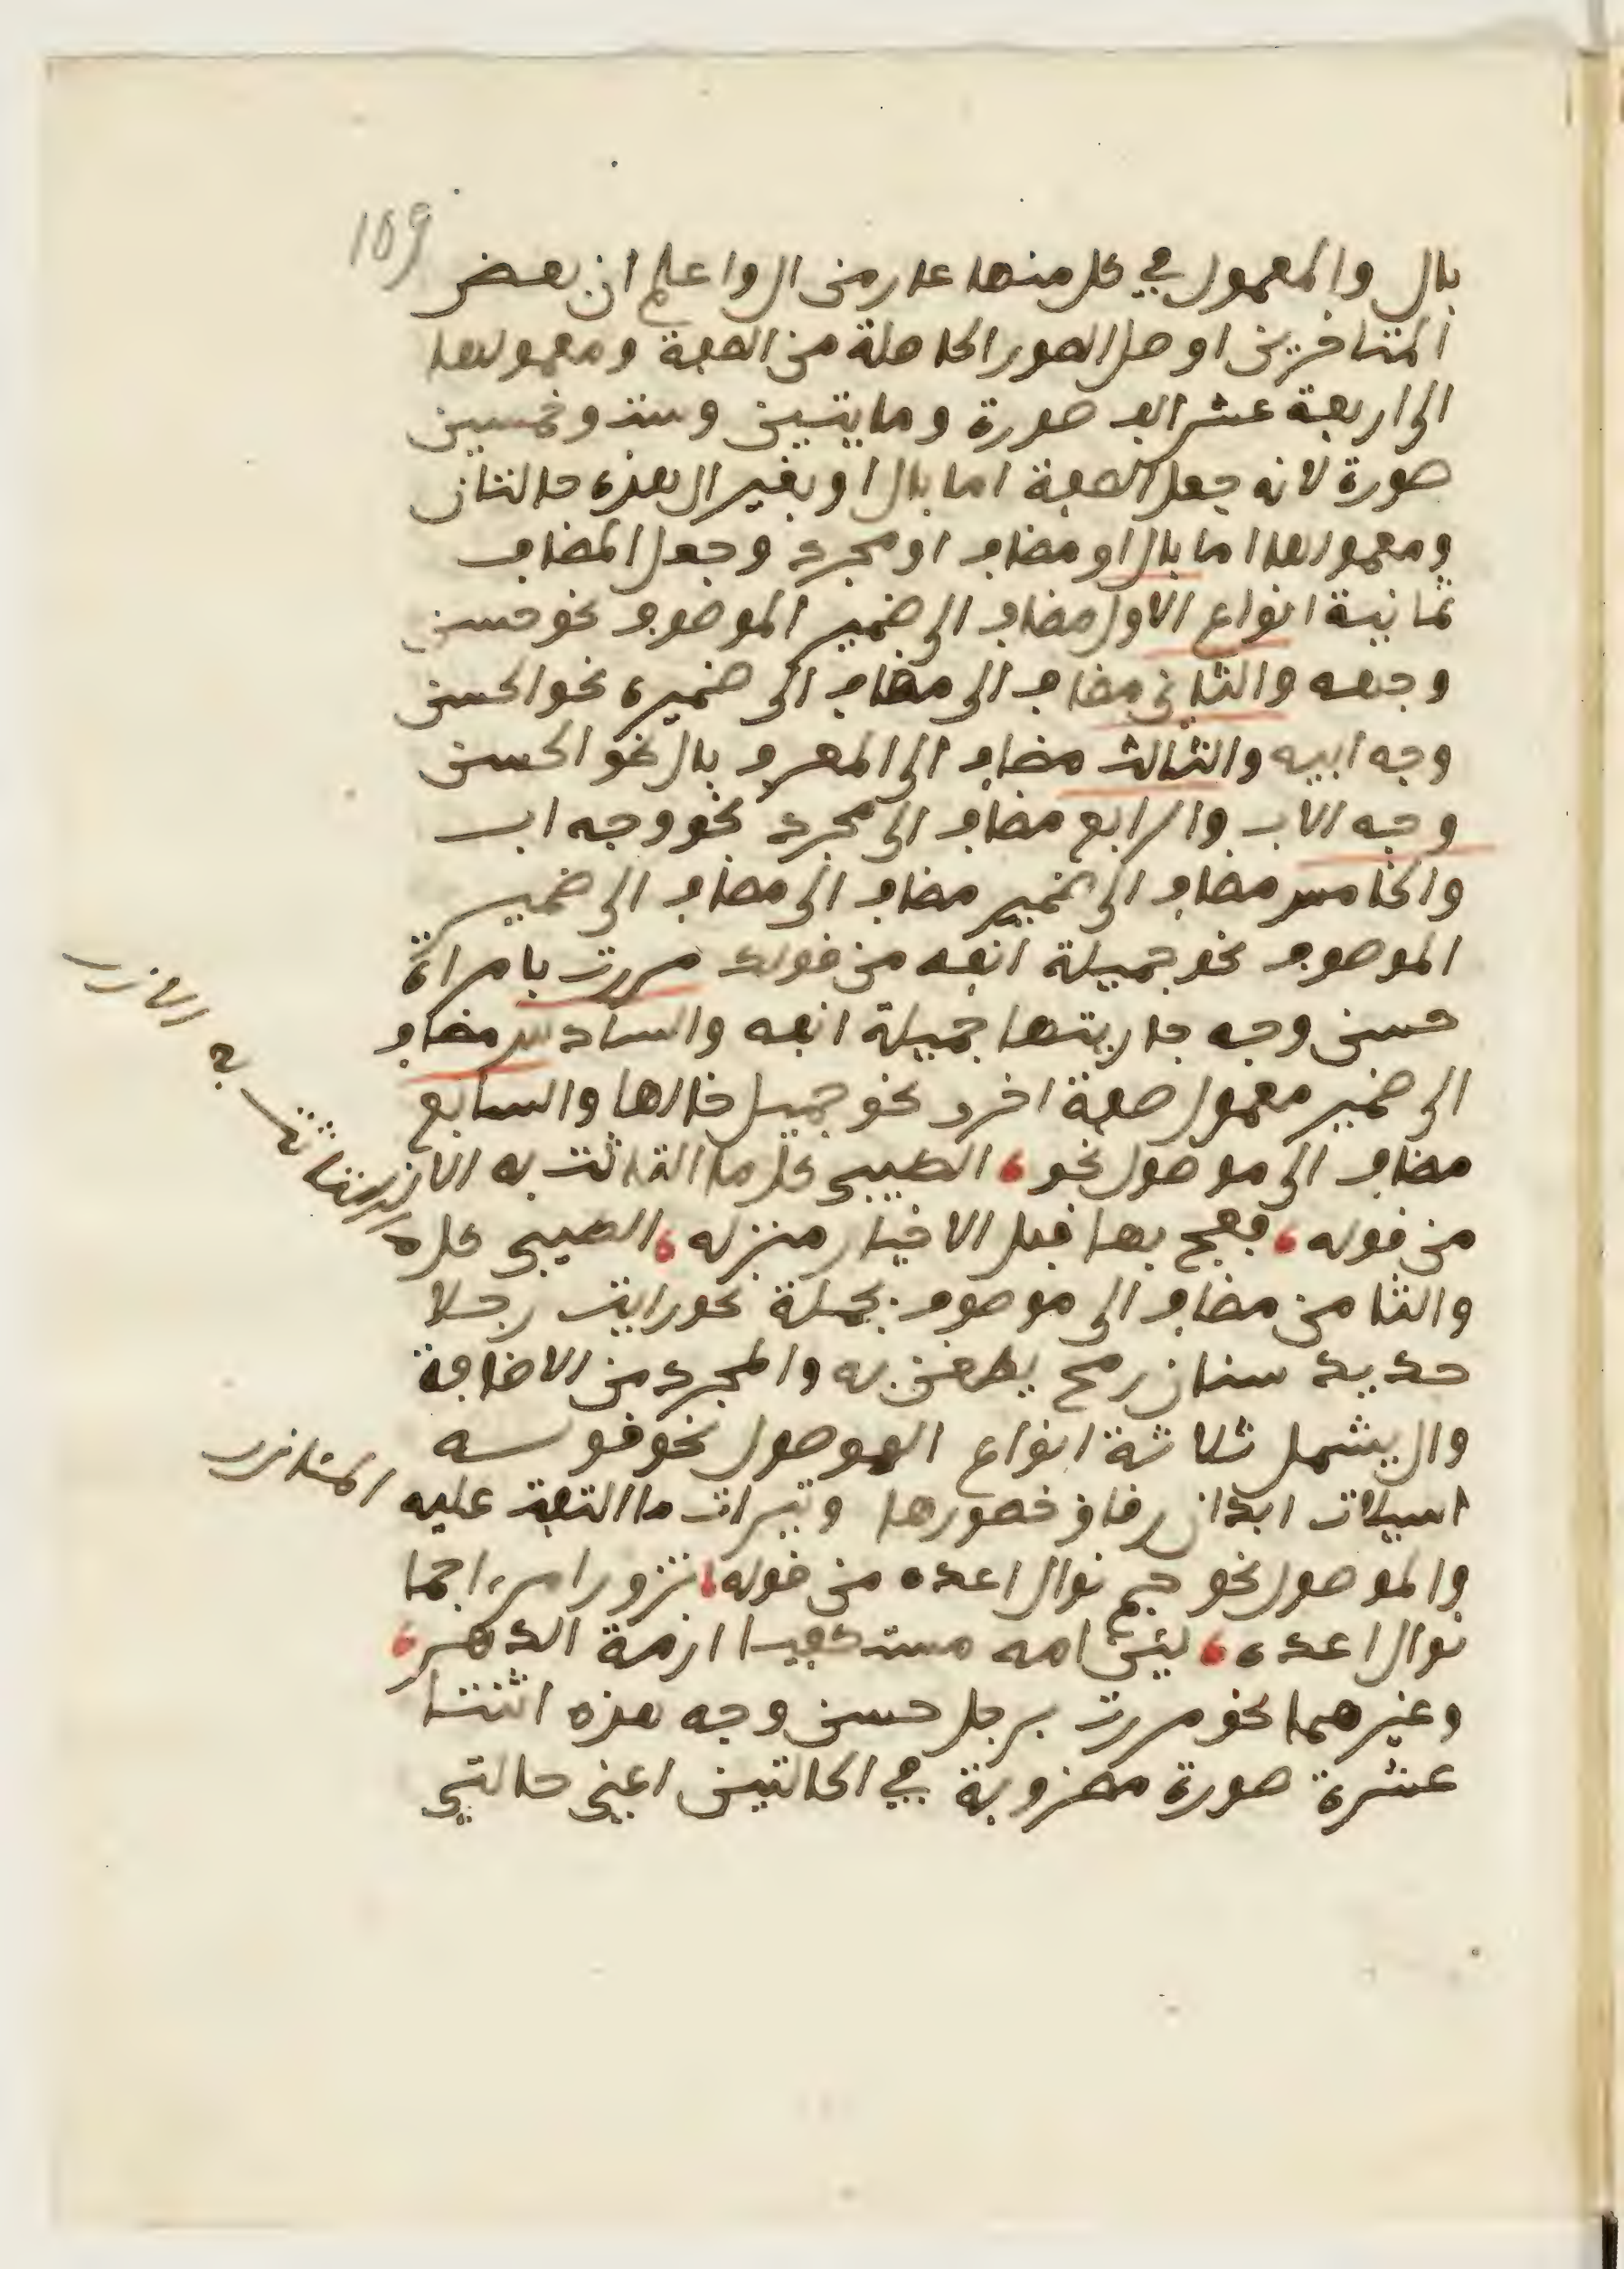 109
بال والمعمول في كل منها عار من ال واعلم ان بعض
المتاخرين اوصل الصور الحاصلة من الصفة ومعمولها
الى اربعة عشر الف صورة ومايتين وستة وخمسين
صورة لانه جعل الصفة اما بال او بغير ال بهذه حالتان
ومعمولها اما بال او مضاف او مجرد وجعل المضاف
ثمانية انواع الاول مضاف الى ضمير الموصوف نحو حسن
وجهه والثاني مضاف الى مضاف الى ضميره نحو الحسن
وجه ابيه والثالث مضاف الى المعرف بال نحو الحسن
وجه الاب والرابع مضاف الى مجرد نحو وجه اب
والخامس مضاف الى ضمير مضاف الى مضاف الى ضمير
الموصوف نحو جميلة انفه من قولك مررت بامراة
حسن وجه جاريتها جميلة انفه والسادس مضاف
الى ضمير معمول صفة اخرى نحو جميل خالها والسابع
مضاف الى موصول نحو الطيبي كل ما التاثت به الازر
من قوله فعج بها قبل الاخيار منزله الطيبي كل ه
والثامن مضاف الى موصوف بجملة نحو رايت رجلا
حديد سنان رمح يطعن به والمجرد من الاضافة
وال يشمل ثلاثة انواع الموصول نحو قوله
اسيلات ابدان رقاق خصورها وثيرات ما التفت عليه المئازر
والموصول نحو جم نوال اعده من قوله نزور امرءا جما
نوال اعده لمن امه مستكفيا ازمة الدهر
وغيرهما نحو مررت برجل حسن وجه هذه اثنتا
عشرة صورة مضروبة في الحالتين اعني حالتي